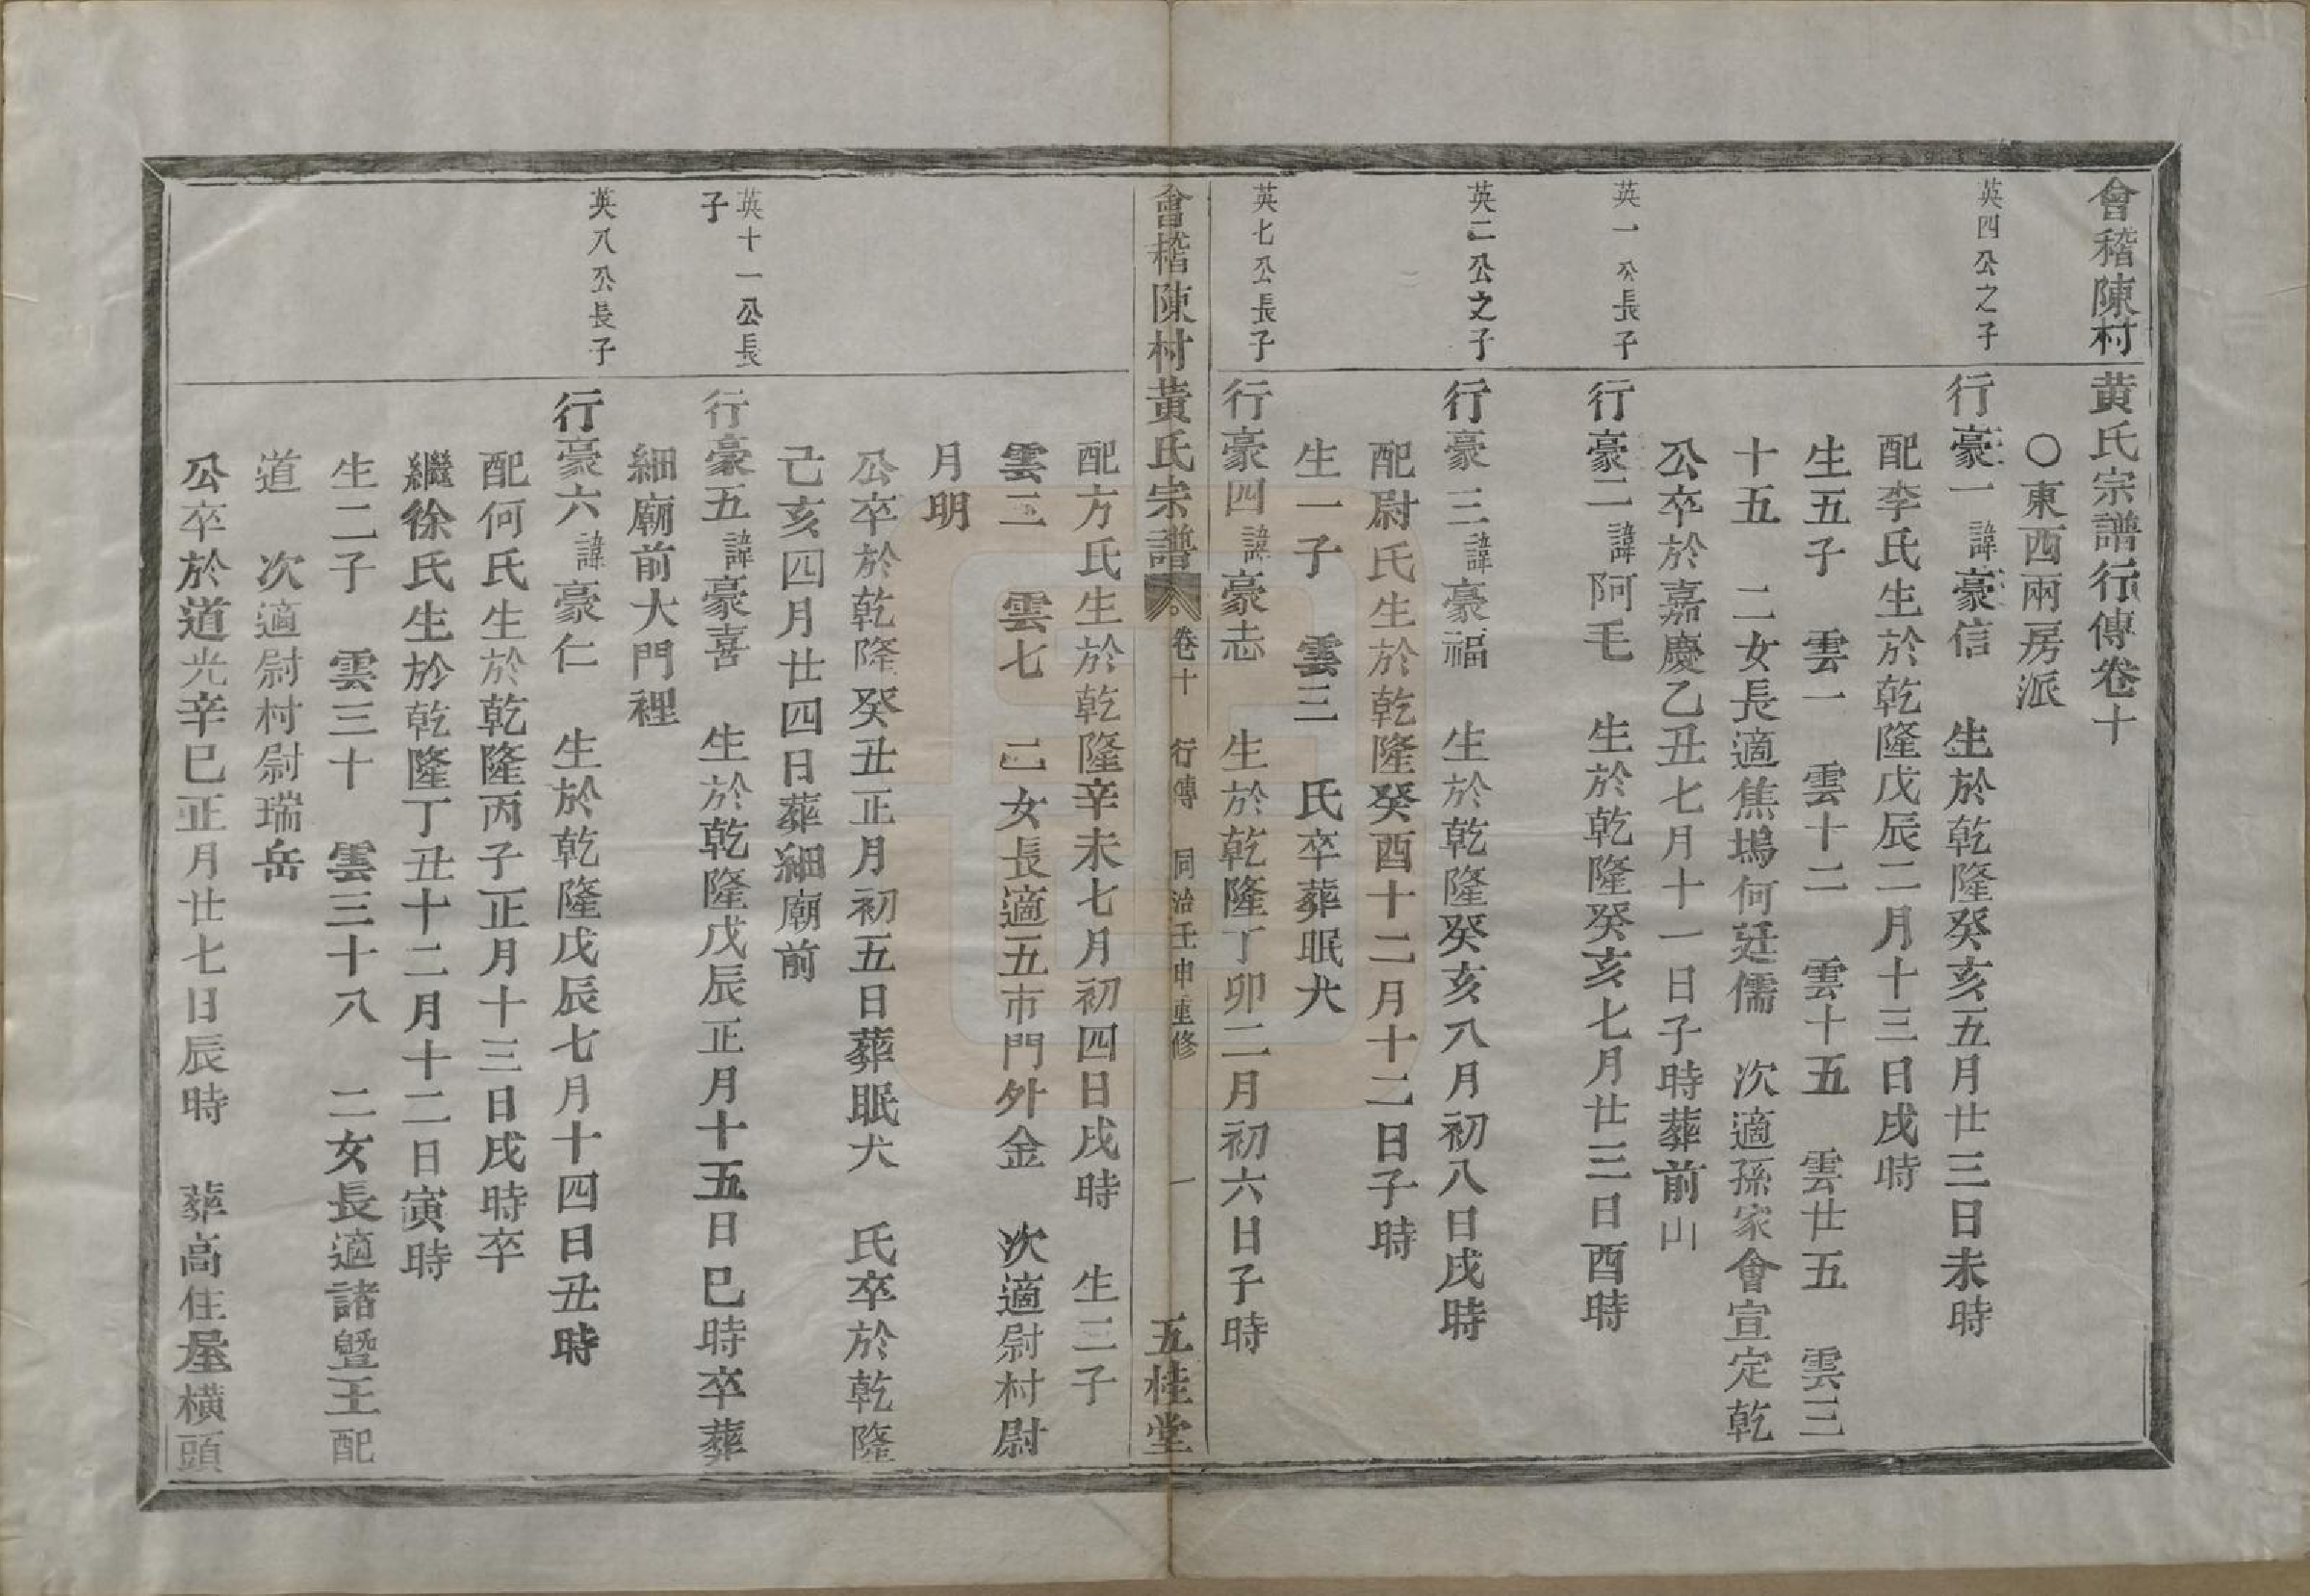 會稽陳村黄氏宗譜行傳卷十
○東西兩房派
英四公之子
行豪一諱豪信 生於乾隆癸亥五月廿三日未時
配李氏生於乾隆戊辰二月十三日戌時
生五子 雲一 雲十二 雲十五 雲廿五 雲三
十五 二女長適焦塢何廷儒 次適孫家會宣定乾
公卒於嘉慶乙丑七月十一日子時葬前山
英一公長子
行豪二諱阿毛 生於乾隆癸亥七月廿三日酉時
英二公之子
行豪三諱豪福 生於乾隆癸亥八月初八日戌時
配尉氏生於乾隆癸酉十二月十二日子時
生一子 雲三 氏卒葬眠犬
英七公長子
行豪四諱豪志 生於乾隆丁卯二月初六日子時
會稽陳村黄氏宗譜 卷十 行傳 同治壬申重修 一 五桂堂
配方氏生於乾隆辛未七月初四日戌時 生二子
雲二 雲七 二女長適五市門外金 次適尉村尉
月明
公卒於乾隆癸丑正月初五日葬眠犬 氏卒於乾隆
己亥四月廿四日葬細廟前
英十一公長
子
行豪五諱豪喜 生於乾隆戊辰正月十五日巳時卒葬
細廟前大門裡
英八公長子
行豪六諱豪仁 生於乾隆戊辰七月十四日丑時
配何氏生於乾隆丙子正月十三日戌時卒
繼徐氏生於乾隆丁丑十二月十二日寅時
生二子 雲三十 雲三十八 二女長適諸暨王配
道 次適尉村尉瑞岳
公卒於道光辛巳正月廿七日辰時 葬高住屋橫頭